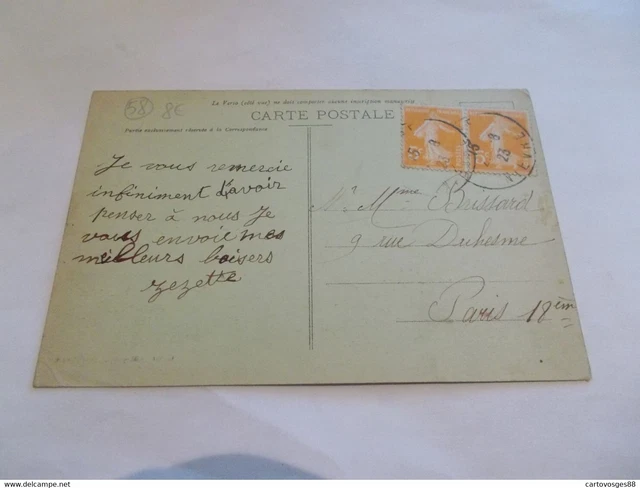 58 8€
La Carte (côté vue) ne doit comporter aucune inscription manuscrite
CARTE POSTALE
Partie exclusivement réservée à la Correspondance
Je vous remercie
infiniment d'avoir
penser à nous Je
vous envoie mes
meilleurs baisers
zezette
Mr Mme Brissard
9 rue Duhesme
Paris 18ème
NIÈVRE
cartovosges88